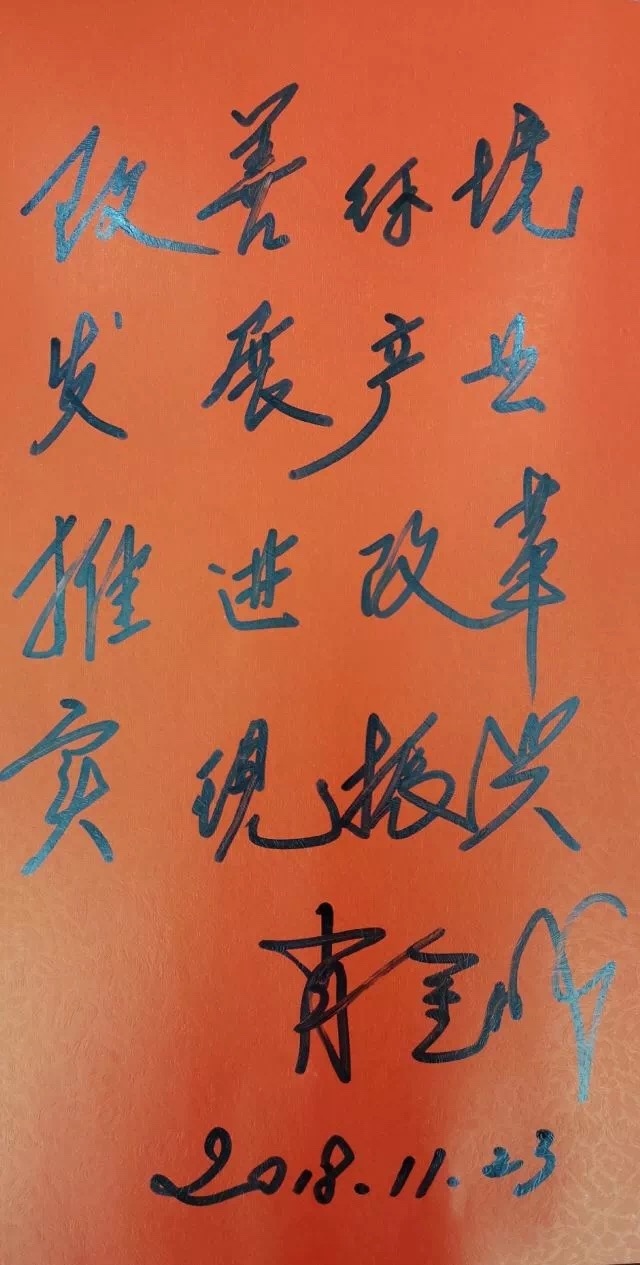 改善环境
发展产业
推进改革
实现振兴
肖金成
2018.11.23